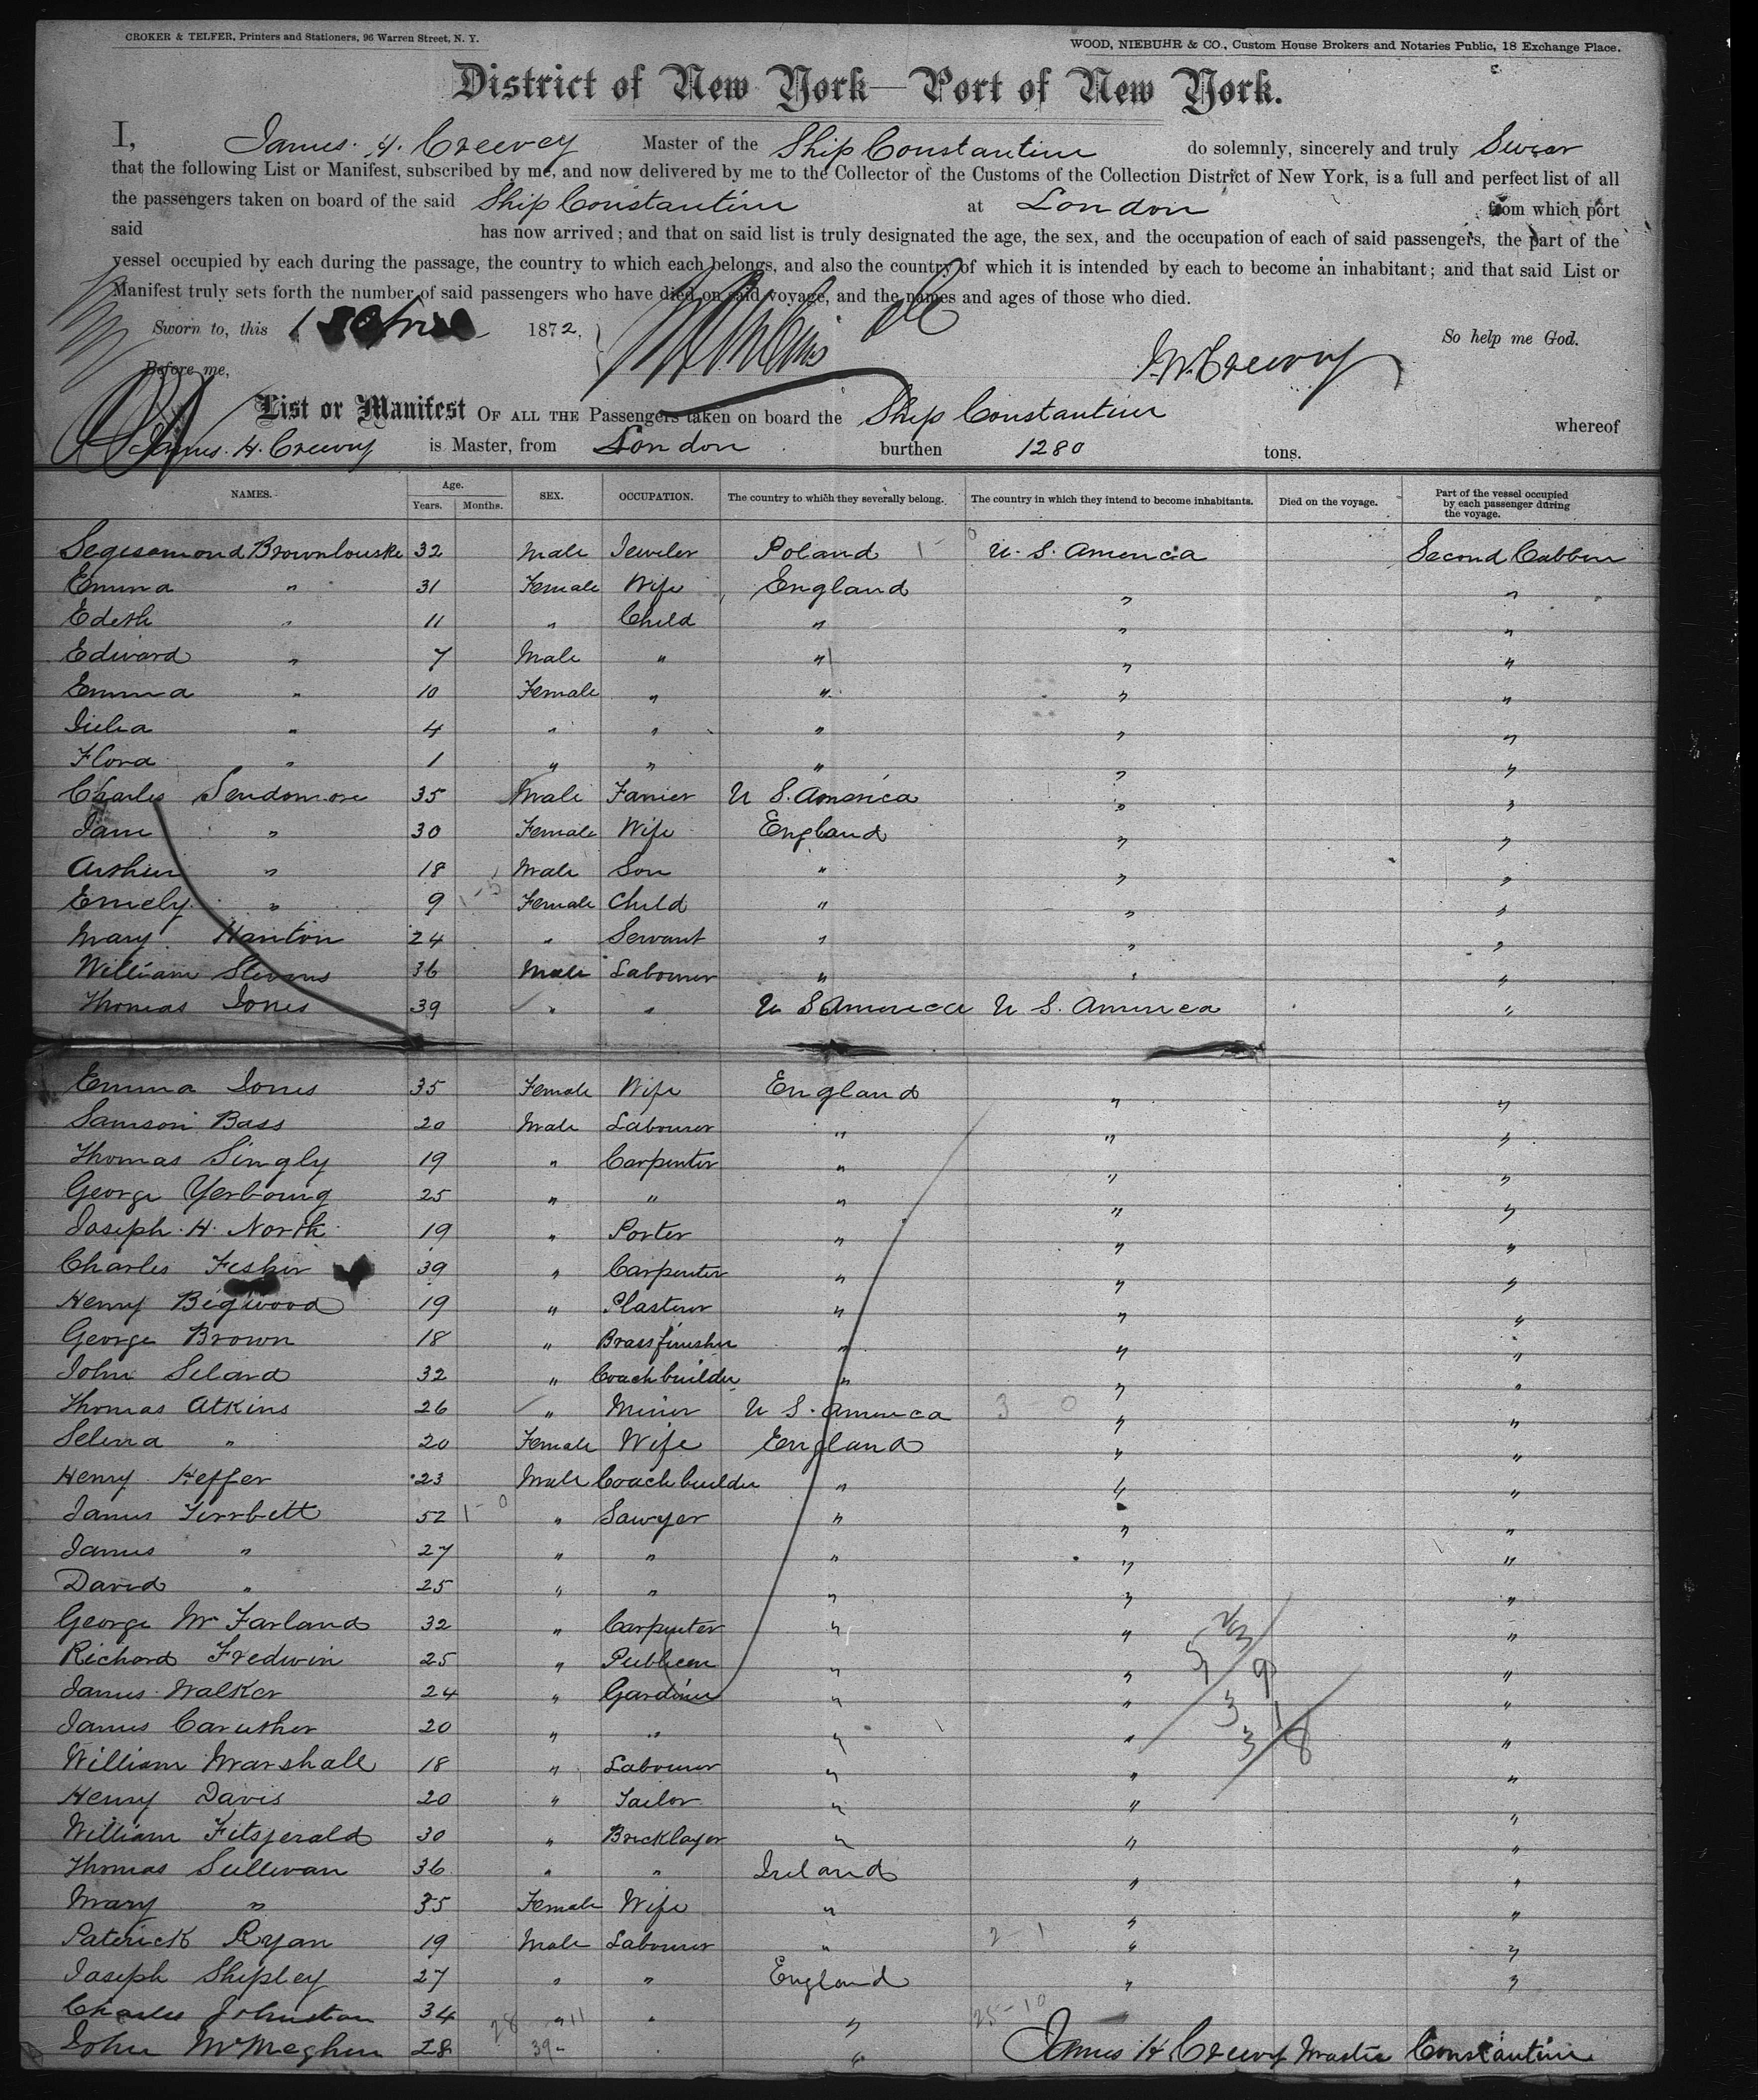 CROKER & TELFER, Printers and Stationers, 96 Warren Street, N. Y.
WOOD, NIEBUHR & CO., Custom House Brokers and Notaries Public, 18 Exchange Place.
District of New York—Port of New York.
I, James. H. Creevey Master of the Ship Constantine do solemnly, sincerely and truly Swear
that the following List or Manifest, subscribed by me, and now delivered by me to the Collector of the Customs of the Collection District of New York, is a full and perfect list of all
the passengers taken on board of the said Ship Constantine at London from which port
said has now arrived; and that on said list is truly designated the age, the sex, and the occupation of each of said passengers, the part of the
vessel occupied by each during the passage, the country to which each belongs, and also the country of which it is intended by each to become an inhabitant; and that said List or
Manifest truly sets forth the number of said passengers who have died on said voyage, and the names and ages of those who died.
Sworn to, this 1872, So help me God.
Before me, J. H. Creevey
List or Manifest OF ALL THE Passengers taken on board the Ship Constantine whereof
James. H. Creevey is Master, from London burthen 1280 tons.
NAMES. Age. Years. Months. SEX. OCCUPATION. The country to which they severally belong. The country in which they intend to become inhabitants. Died on the voyage. Part of the vessel occupied by each passenger during the voyage.
Segesomond Brownlouske 32 Male Jeweler Poland 1 - 0 U. S. America Second Cabbin
Emma " 31 Female Wife England " "
Edeth " 11 " Child " " "
Edward " 7 Male " " " "
Emma " 10 Female " " " "
Julia " 4 " " " " "
Flora " 1 " " " " "
Charles Sendomore 35 Male U S. America " "
Jane " 30 Female Wife England " "
Arthur " 18 Male Son " " "
Emely " 9 Female Child " " "
Mary Hanton 24 " Servant " " "
William Stevens 36 Male Labourer " " "
Thomas Jones 39 " " U S America U S. America "
Emma Jones 35 Female Wife England " "
Samson Bass 20 Male Labourer " " "
Thomas Singly 19 " Carpenter " " "
George Yerboung 25 " " " " "
Joseph. H. North 19 " Porter " " "
Charles Fesher 39 " Carpenter " " "
Henry Bigwood 19 " Plasterer " " "
George Brown 18 " Brassfinisher " " "
John Selard 32 " Coachbuilder " " "
Thomas Atkins 26 " Miner U S. America 3 0 " "
Selena " 20 Female Wife England " "
Henry Heffer 23 Male Coachbuilder " " "
James Tirrbett 52 1 - 0 " Sawyer " " "
James " 27 " " " " "
David " 25 " " " " "
George Mc Farland 32 " Carpenter " " "
Richard Fredwin 25 " Publican " " "
James Walker 24 " Gardiner " " "
James Caruther 20 " " " " "
William Marshall 18 " Labourer " " "
Henry Davis 20 " Tailor " " "
William Fitsjerald 30 " Bricklayer " " "
Thomas Sullivan 36 " " Ireland " "
Mary " 35 Female Wife " " "
Paterick Ryan 19 Male Labourer " 2 - 1 " "
Joseph Shipley 27 " " England " "
Charles Johnston 34 28 " 11 " " 25 - 10 "
John McMeghen 28 39 " "
James H. Creevey Master Constantine